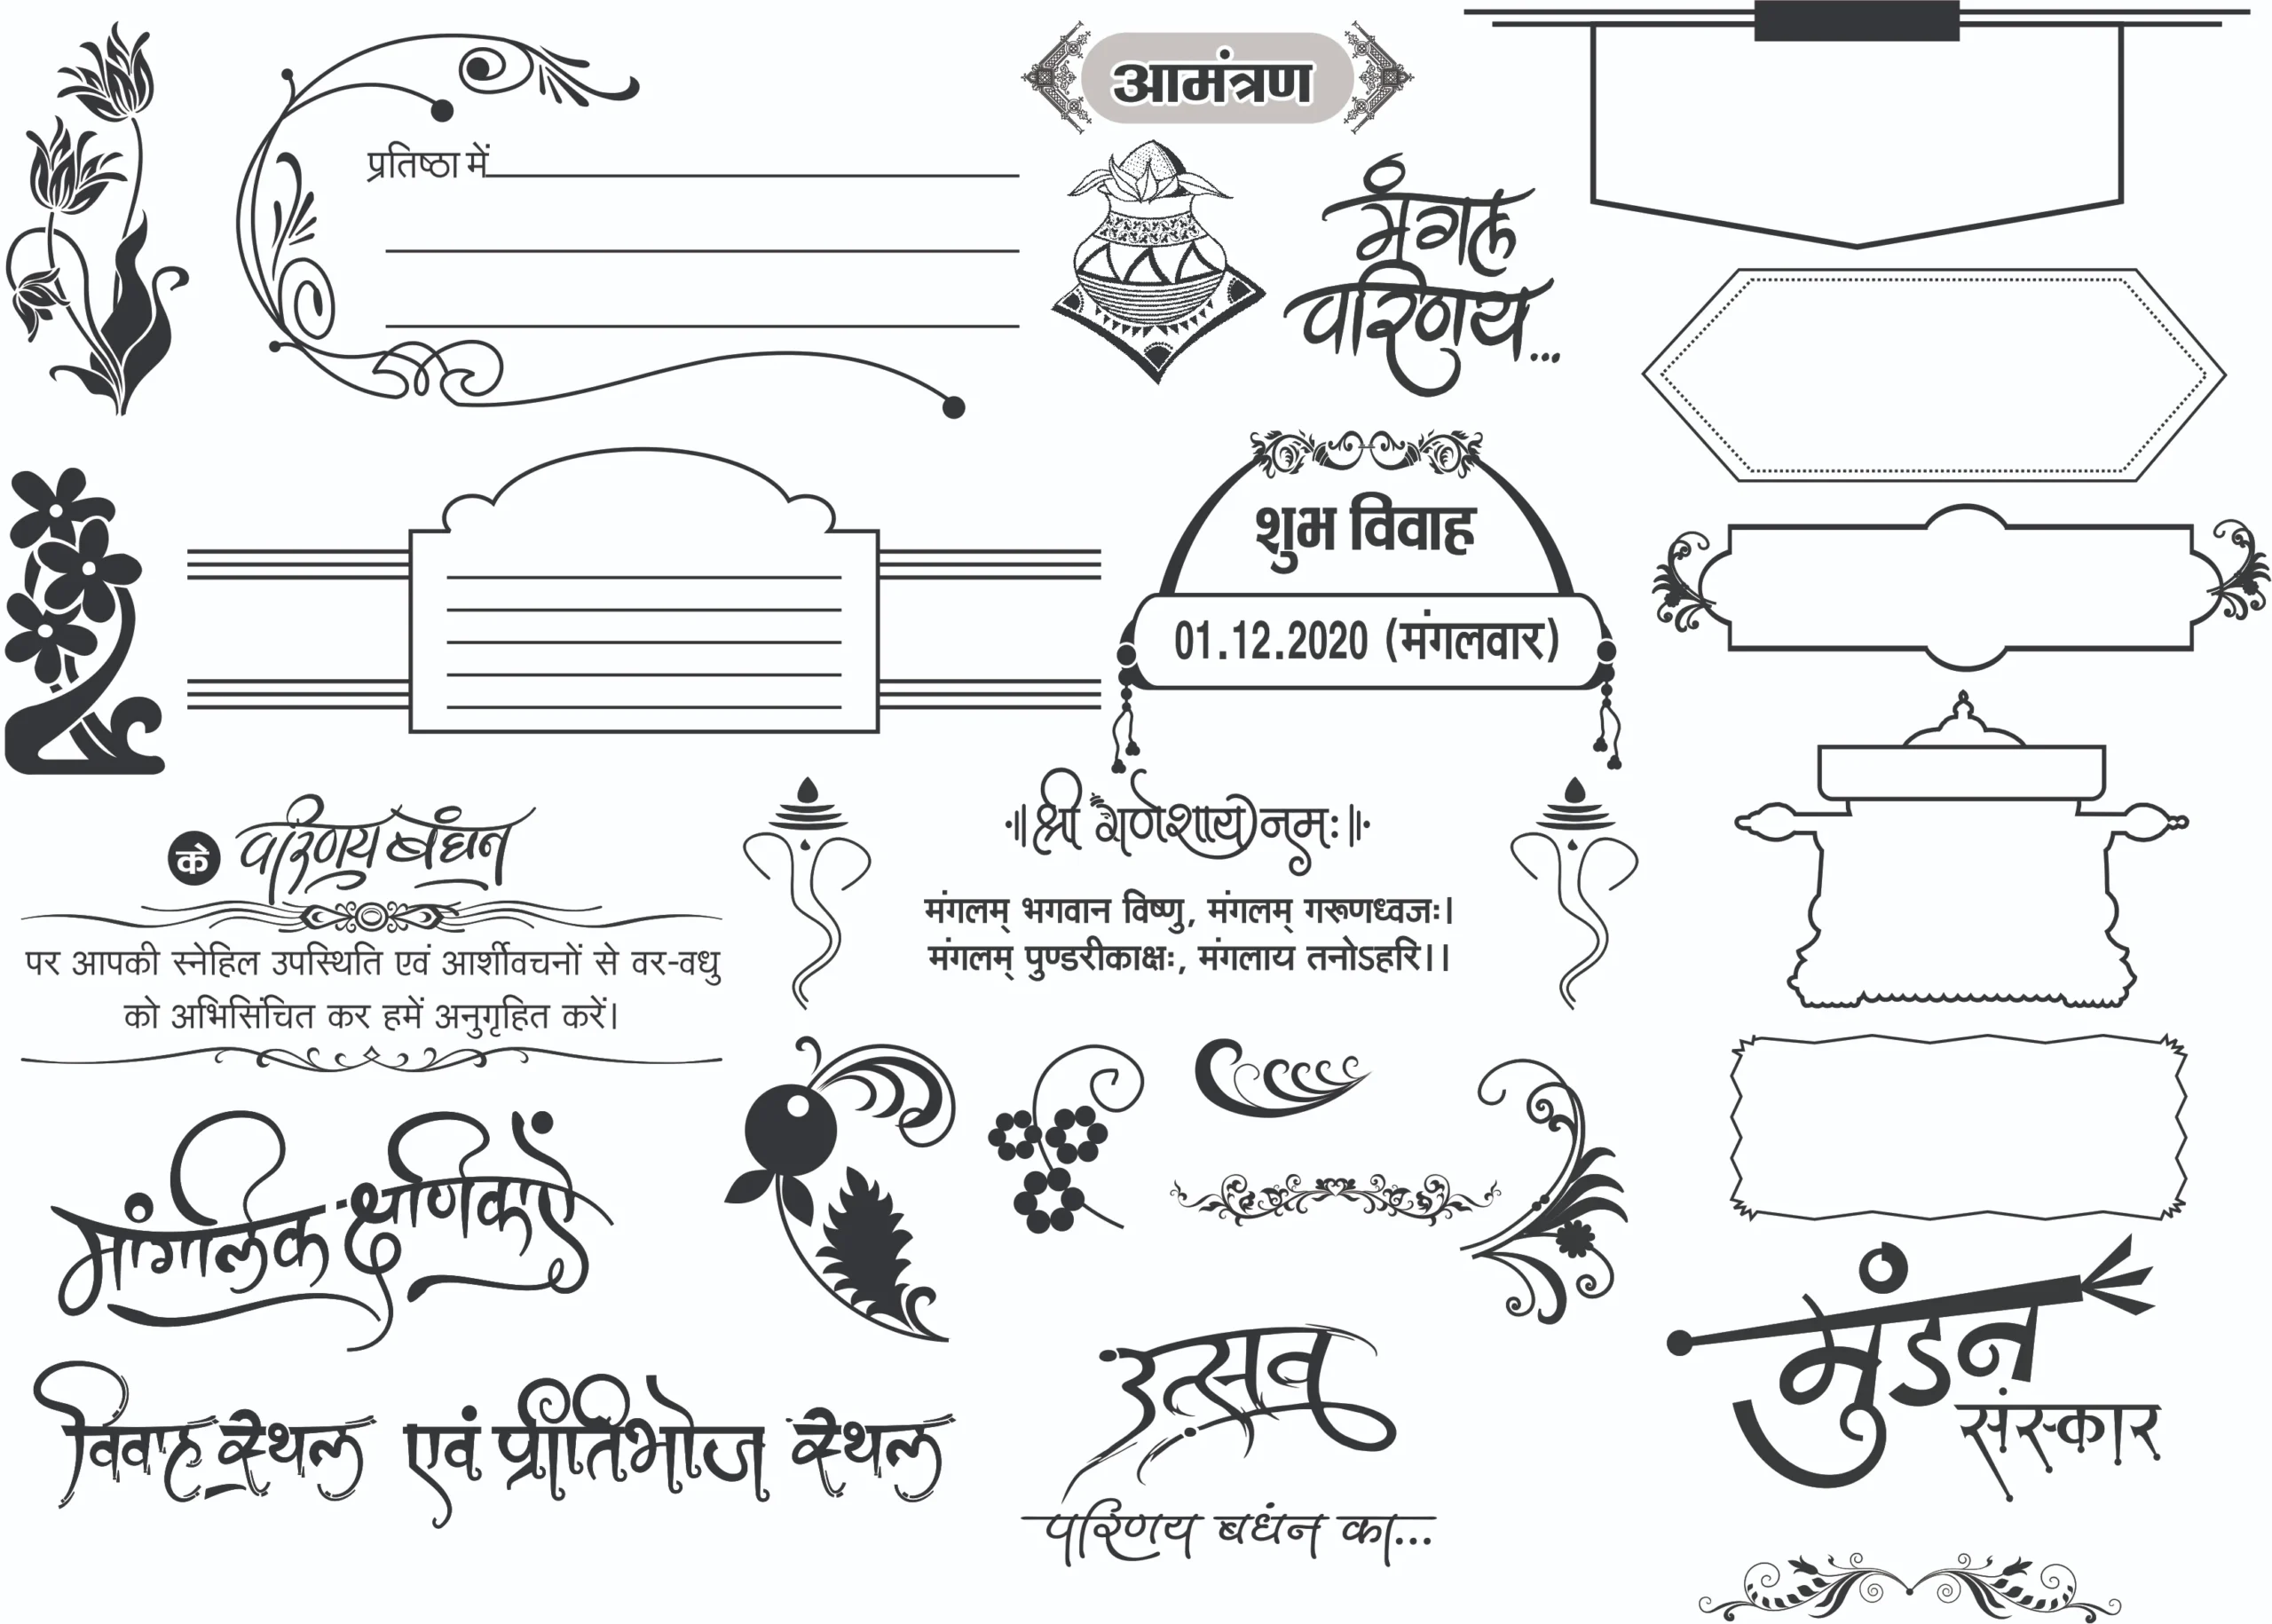 आमंत्रण
प्रतिष्ठा में
मंगल
परिणय...
शुभ विवाह
01.12.2020 (मंगलवार)
के परिणय बंधन
पर आपकी स्नेहिल उपस्थिति एवं आर्शीवचनों से वर-वधु
को अभिसिंचित कर हमें अनुगृहित करें।
॥ श्री गणेशाय नमः ॥
मंगलम् भगवान विष्णु, मंगलम् गरूणध्वजः।
मंगलम् पुण्डरीकाक्षः, मंगलाय तनोऽहरि।।
मांगलिक क्षणिकाऐं
विवाह स्थल एवं प्रीतिभोज स्थल
उत्सव
परिणय बधंन का...
मुंडन
संस्कार